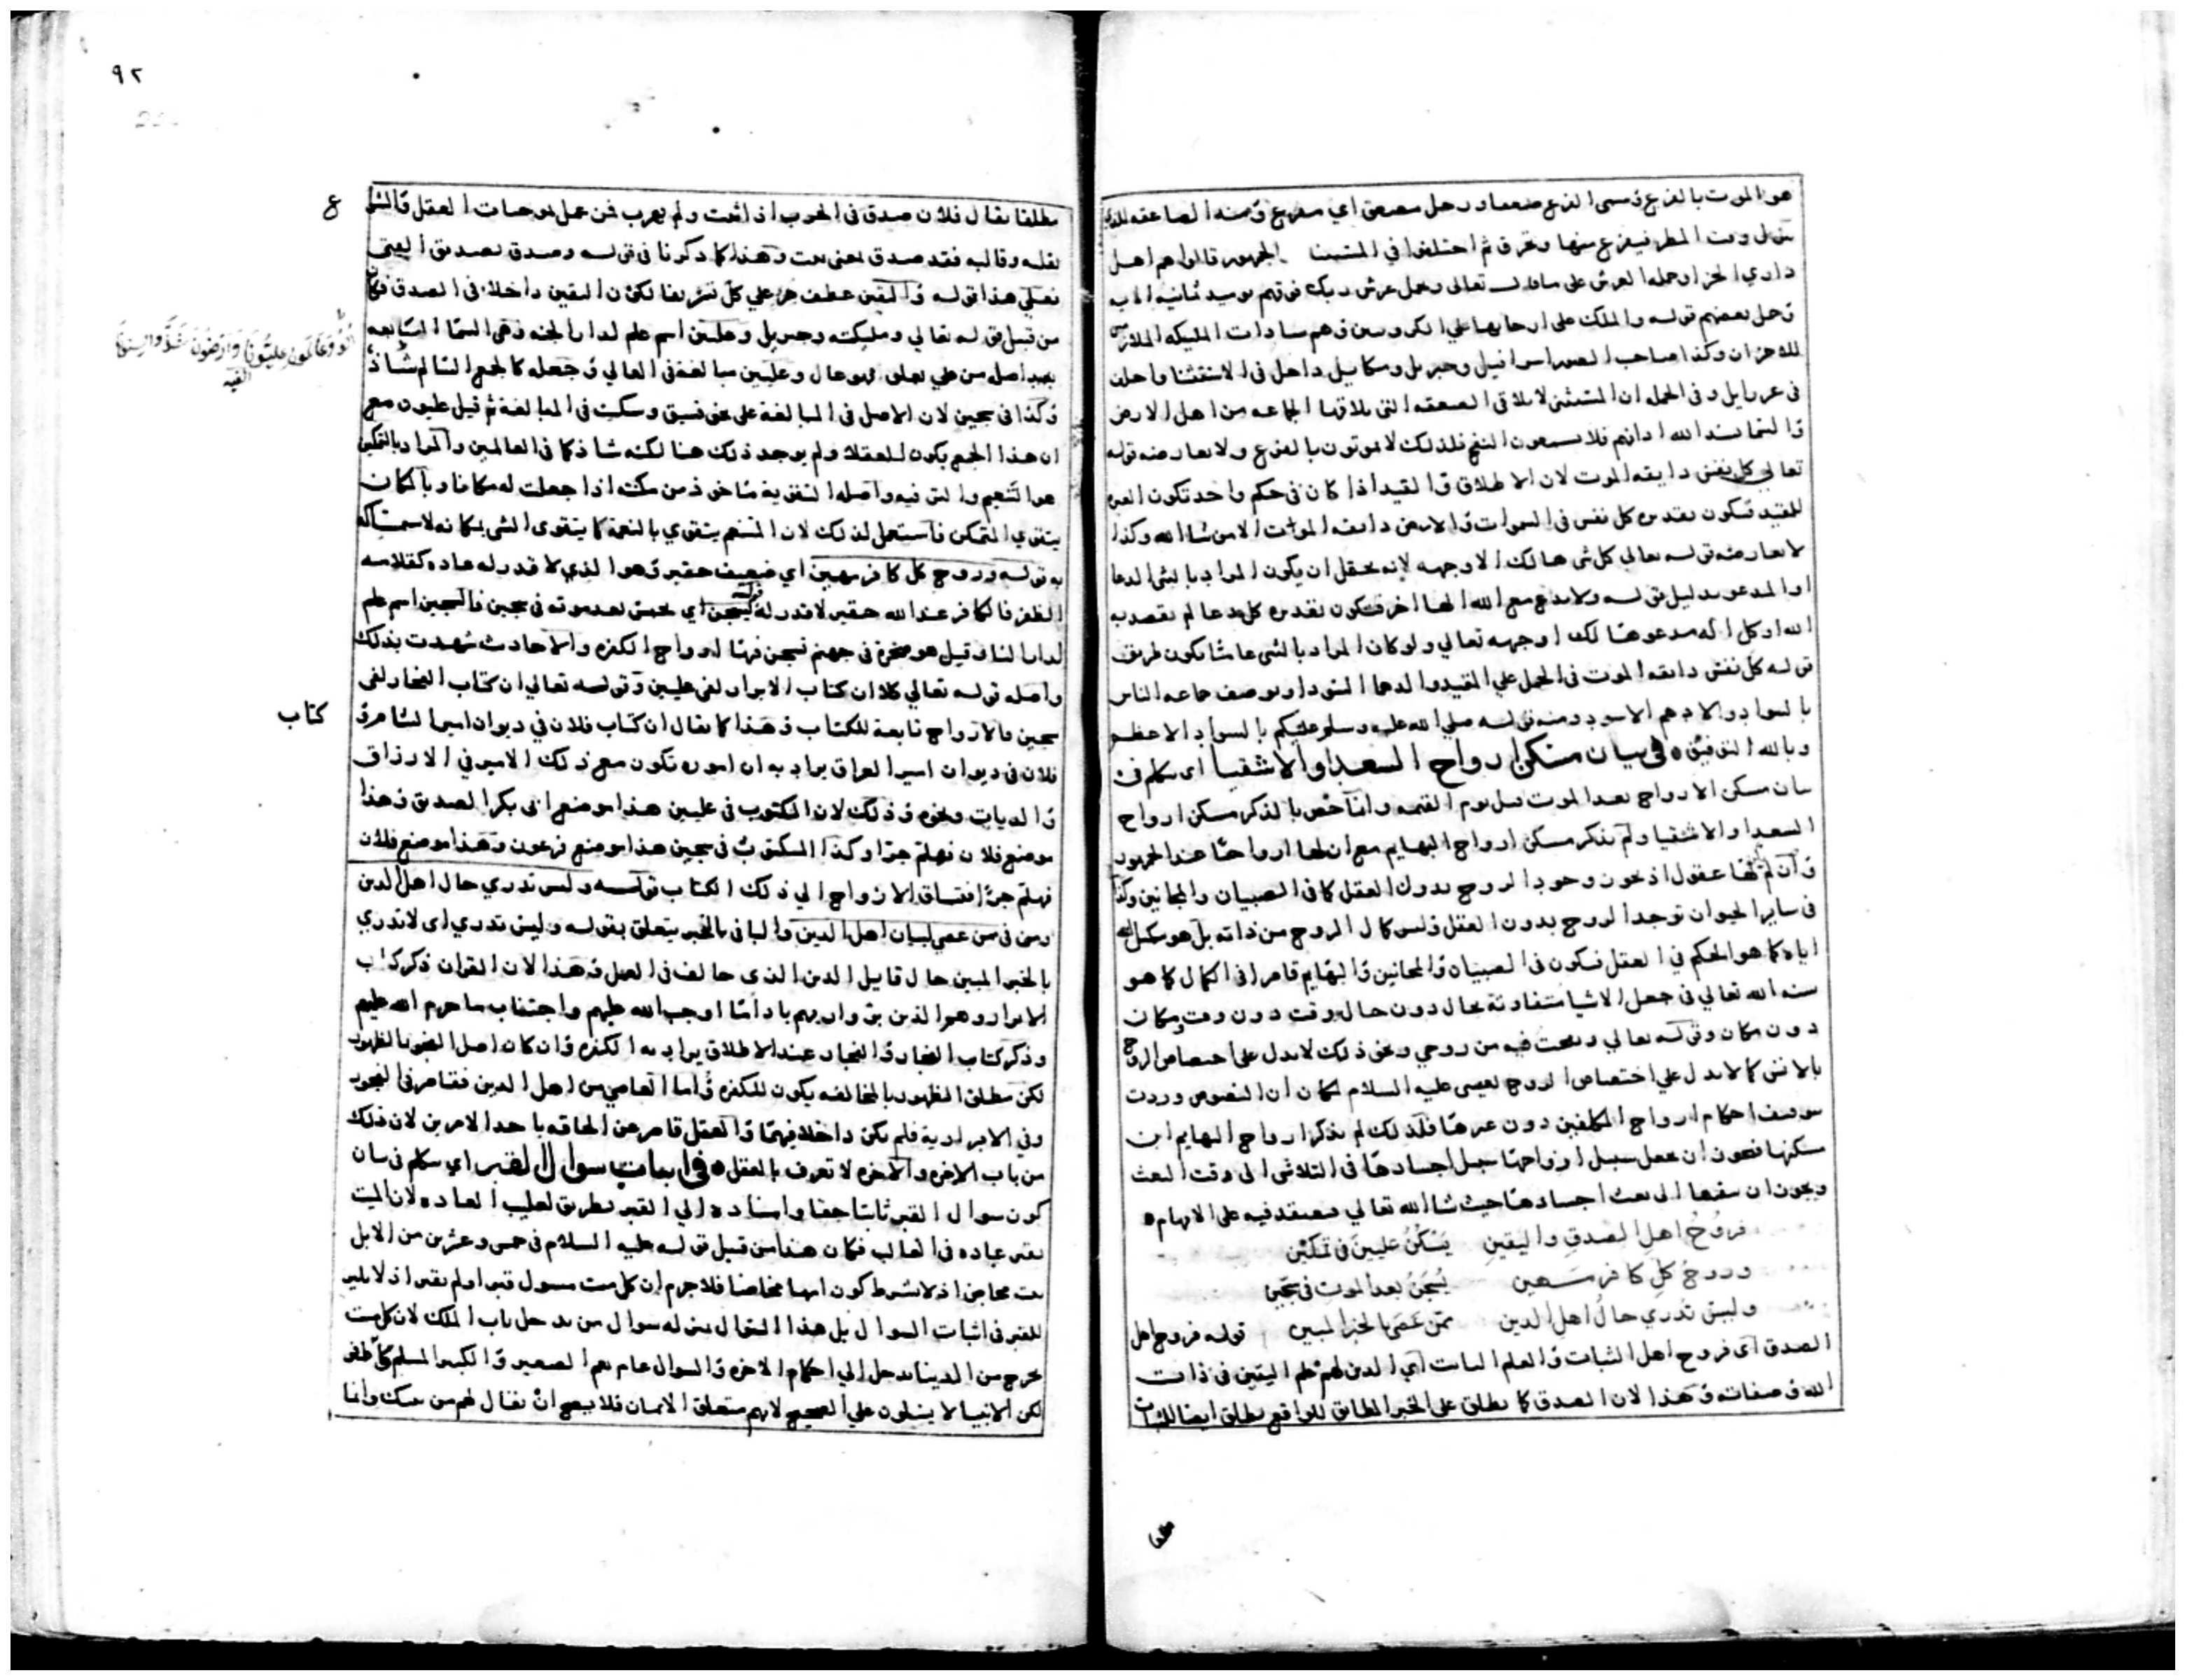 هو الموت بالفزع وسمى الفزع صعقا ورجل مصعق اي مفزع ومنه الصاعقه للذي
ينزل وقت المطر فيفزع منها وتحرق ثم اختلفوا في المستثنا الجمهور قالوا هم اهل
داري الجزا وحمله العرش على ما قال تعالى ويحمل عرش ربك فوقهم يوميد ثمانيه الايه
وحمل بعضهم قوله والملك على ارجايها علي الكروبيين وهم سادات المليكه
وكذا صاحب الصور اسرافيل وجبريل وميكاييل داخل في الاستثنا
في عزرايل وفي الجمله ان المستثنى لا يلاقى الصعقه التى يلاقها الجماعه من اهل الارض
والسما يسد الله اذانهم فلا يسمعون النفخ فلذلك لا يموتون بالفزع ولا يعارضه قوله
تعالى كل نفس دايقه الموت لان الاطلاق والقيد اذا كان في حكم واحد تكون العبره
للمقيد فيكون تقديره كل نفس في السموات والارض دايقه الموات الا من شا الله وكذا
لا يعارضه قوله تعالي كل شى هالك الا وجهه لانه يحتمل ان يكون المراد بالشى الدعا
او المدعو بدليل قوله ولا تدع مع الله الها اخر فيكون تقديره كل دعا لم يقصد به
الله او كل اله مدعو هالك الا وجهه تعالي ولو كان المراد بالشى عاما يكون طريقه
قوله كل نفس دايقه الموت في الحمل علي المقيد والدهما السودا وبوصف جماعه الناس
بالسواد والادهم الاسود ومنه قوله صلى الله عليه وسلم عليكم بالسواد الاعظم
وبالله التوفيق ه في بيان مسكن ارواح السعدا والاشقيا اى يتكلم في
بيان مسكن الارواح بعد الموت قبل يوم القيمه وانما خص بالذكر مسكن ارواح
السعدا والاشقيا ولم يذكر مسكن ارواح البهايم مع ان لها ارواحا عند الجمهور
وان لم لها عقول اذ يجوز وجود الروح بدون العقل كما في الصبيان والمجانين وكذا
في ساير الحيوان توجد الروح بدون العقل وليس كمال الروح من ذاته بل هو بتكميل الله
اياه كما هو الحكم في العقل فيكون في الصبيان والمجانين والبهايم قاصرا في الكمال كما هو
سنه الله تعالي في جعل الاشيا متفاوتة بحال دون حال ووقت دون وقت ومكان
دون مكان وقوله تعالي ونفخت فيه من روحي ونحو ذلك لا يدل على اختصاص الروح
بالانس كما لا يدل علي اختصاص الروح لعيسى عليه السلام لمكان ان النصوص وردت
بوصف احكام ارواح المكلفين دون غيرها فلذلك لم يذكر ارواح البهايم اين
مسكنها فيجوز ان يجعل سبيل ارواحها سبيل اجسادها في التلاشى الى وقت البعث
ويجوز ان يبقيها الى بعث اجسادها حيث شا الله تعالي فيعتقد فيه على الابهام ه
فروح اهل الصدق واليقين يسكن عليين في تمكين
وروح كل كافر مهين يسجن بعد الموت في سجين
وليس تدري حال اهل الدين ممن عصى بالخبر المبين قوله فروح اهل
الصدق اى فروح اهل الثبات والعلم الثابت اي الدين لهم علم اليقين في ذات
الله وصفاته وهذا لان الصدق كما يطلق على الخبر المطابق للواقع يطلق ايضا للثبات
مطلقا
٩٢
مطلقا يقال فلان صدق في الحرب اذا ثبت ولم يهرب فمن عمل بموجبات العقل
بقلبه وقالبه فقد صدق بمعنى ثبت وهذا كما ذكرنا في قوله وصدق تصديق اليقين
فعلى هذا قوله واليقين عطف جزء علي كل تشريفا لكون اليقين داخلا في الصدق فكان
من قبيل قوله تعالي ومليكته وجبريل وعليين اسم علم لدار الجنه وهي السما السابعه
اصله من علي يعلى فهو عال وعليين مبالغه في العالي وجعله كالجمع السالم شاذ
وكذا في سجين لان الاصل في المبالغة على نحو فسيق وسكيت في المبالغة ثم قيل عليون مع
ان هذا الجمع يكون للعقلا ولم يوجد ذلك هنا لكنه شاذ كما في العالمين والمراد بالتمكين
هو التنعيم والترفيه واصله التقوية ماخوذ من مكنته اذا جعلت له مكانا وبالمكان
يتقوي المتمكن فاستعمل لذلك لان المتنعم يتقوي بالنعمة كما يتقوى الشى بمكانه
قوله وروح كل كافر مهين اي ضعيف حقير وهو الذي لا قدر له عاده كقلامه
الظفر فالكافر عند الله حقير لا قدر له قوله يسجن اي يحبس بعد موته في سجين فالسجين اسم علم
لدار النار وقيل هو صخرة في جهنم تسجن فيها ارواح الكفره والاحاديث شهدت بذلك
واصله قوله تعالي كلا ان كتاب الابرار لفى عليين وقوله تعالي ان كتاب الفجار لفى
سجين فالارواح تابعة للكتاب وهذا كما يقال ان كتاب فلان في ديوان امير الشام و
كتاب
فلان في ديوان امير العراق يراد به ان اموره تكون مع ذلك الامير في الارزاق
والديات ونحوه وذلك لان المكتوب في عليين هذا موضع ابى بكر الصديق وهذا
موضع فلان فهلم جرا وكذا المكتوب في سجين هذا موضع فرعون وهذا موضع فلان
فهلم جرا فتساق الارواح الي ذلك الكتاب قوله وليس تدري حال اهل الدين
ومن في من عصى لبيان اهل الدين والبا في بالخبر يتعلق بقوله وليس تدري اى لا تدري
بالخبر المبين حال قايل الدين الذى خالف في العمل وهذا لان القران ذكر كتاب
الابرار وهو الذين بروا ربهم بادا ما اوجب الله عليهم واجتناب ما حرم الله عليهم
وذكر كتاب الفجار والفجار عند الاطلاق يراد به الكفره وان كان اصل الفجور الظهور
لكن مطلق الظهور بالمخالفه يكون للكفره واما العاصي من اهل الدين فقاصر في الفجور
وفي الابرارية فلم يكن داخلا فيهما والعقل قاصر عن الحاقه باحد الامرين لان ذلك
من باب الاخره والاخره لا تعرف بالعقل ه في اثبات سوال القبر اي يتكلم في بيان
كون سوال القبر ثابتا حقا واسناده الي القبر بطريق تغليب العاده لان الميت
يقبر عاده في الغالب فكان هذا من قبيل قوله عليه السلام في خمس وعشرين من الابل
بنت مخاض اذ لا يشترط كون امها مخاضا فلا جرم ان كل ميت مسول قبر او لم يقبر اذ لا تاثير
للقبر في اثبات السوال بل هذا السوال بمنزله سوال من يدخل باب الملك لان كل ميت
يخرج من الدينا يدخل الي احكام الاخره والسوال عام يعم الصغير والكبير المسلم
لكن الانبيا لا يسئلون علي الصحيح لانهم متعلق الايمان فلا يصح ان يقال لهم من نبيك وانما